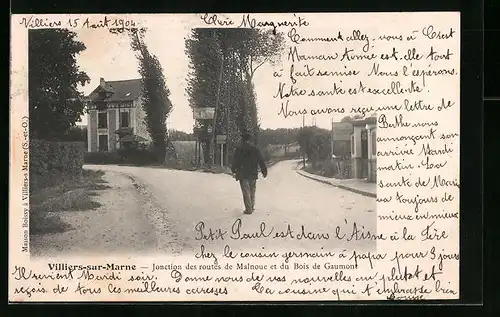 Villiers 15 Août 1904
Chère Marguerite
Comment allez-vous à Crest
Maman Armie est-elle tout
à fait remise Nous l'espérons.
Notre santé est excellente.
Nous avons reçu une lettre de
Berthe nous
annonçant son
arrivée Mardi
matin. La
santé de Marie
va toujours de
mieux en mieux
Petit Paul est dans l'Aisne à La Fère
chez le cousin germain à papa pour 8 jours
Il revient Mardi soir. Donne nous de vos nouvelles au plutôt et
reçois de tous les meilleures caresses La cousine qui t'embrasse bien
Louise
Maison Boissy à Villiers-s-Marne (S.-et-O.)
Villiers-sur-Marne — Jonction des routes de Malnoue et du Bois de Gaumont